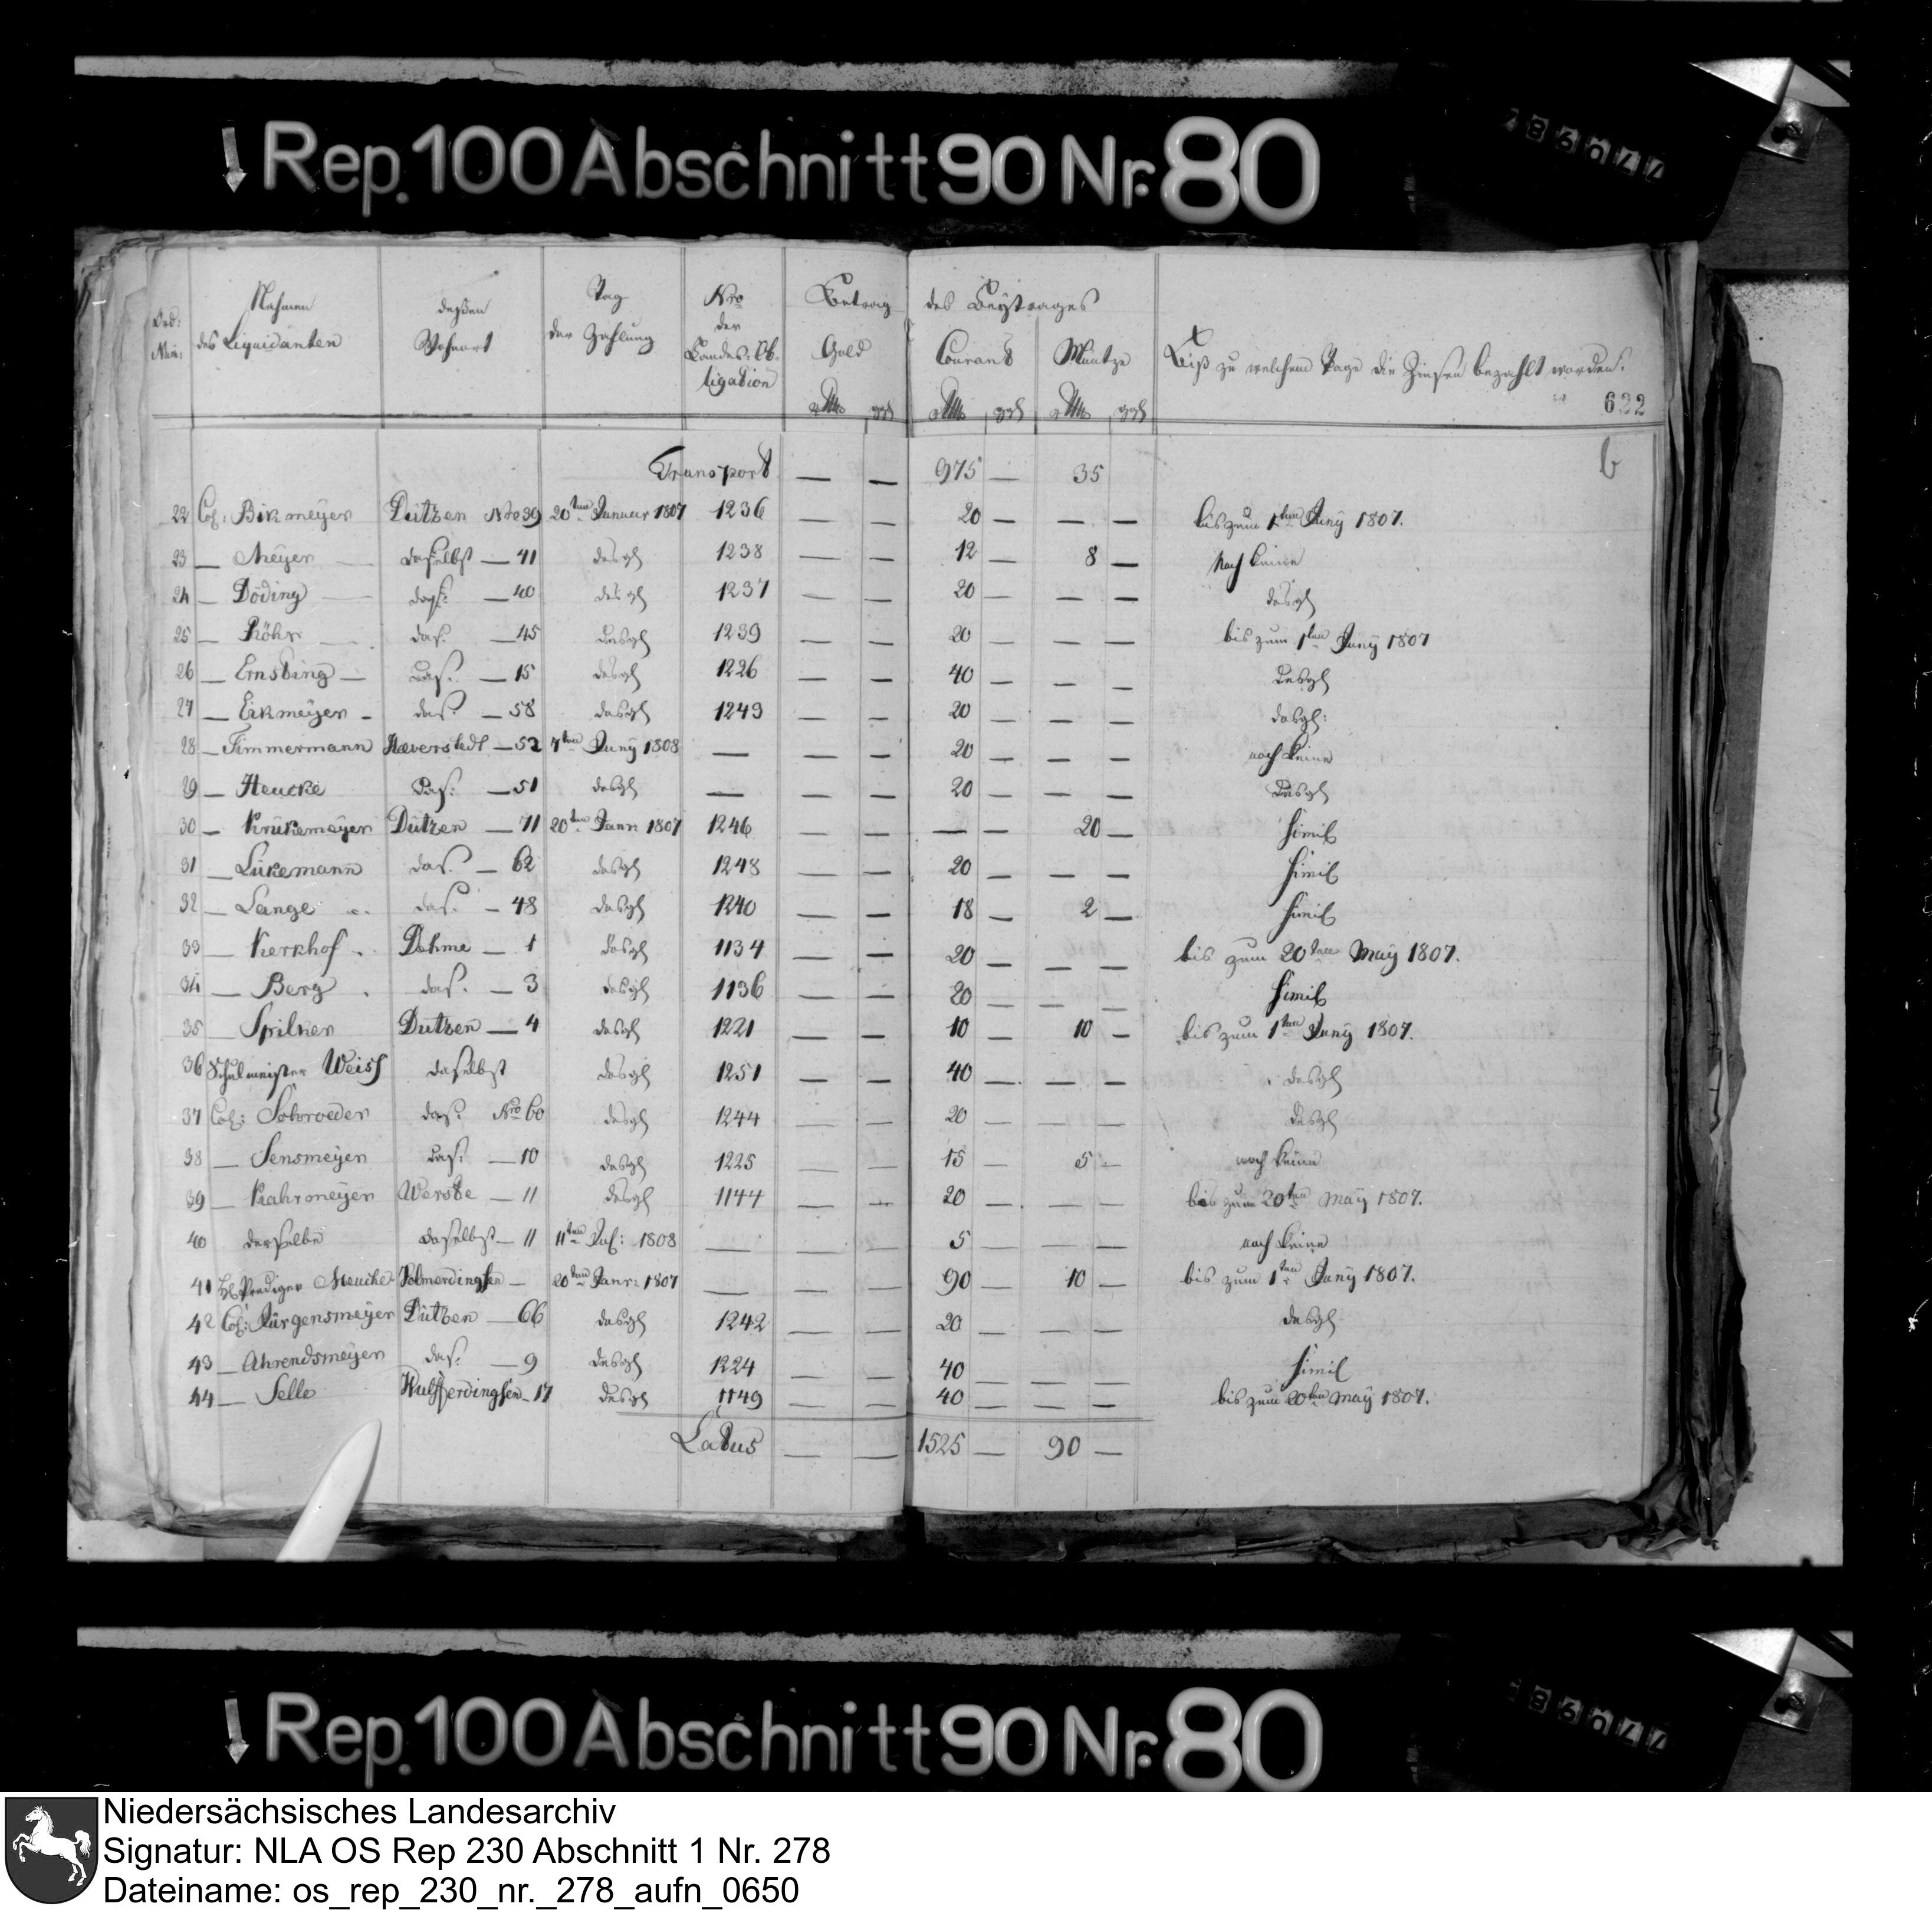 ↓ Rep. 100 Abschnitt 90 Nr. 80
Ord: Num: Nahmen des Liquidanten deßen Wohnort Tag der Zahlung Nro der Landes-Obligation Betrag des Beytrages Gold Courant Müntze Biß zu welchem Tage die Zinsen bezahlt worden.
622
6
Transport — — 975 — 35
22 Col: Bikmeyer Dützen Nro 39 20ten Januar 1807 1236 20 — — — bis zum 1ten Juny 1807.
23 — Meyer — daselbst — 41 desgl 1238 — — 12 — 8 — Noch keine
24 — Döding — das: — 40 desgl 1237 — — 20 — — — desgl
25 — Röhr — das. — 45 desgl 1239 — — 20 — — — bis zum 1ten Juny 1807
26 — Ernsting — das. — 15 desgl 1226 — — 40 — — — desgl
27 — Eikmeyer — das. — 58 desgl 1249 — — 20 — — — desgl:
28 — Timmermann Haeverstedt — 52 7ten Juny 1808 — — — 20 — — — noch keine
29 — Heucke das: — 51 desgl — — — 20 — — — desgl
30 — Krükemeyer Dützen — 71 20ten Janr 1807 1246 — — — — 20 — simil
31 — Lükemann das. — 62 desgl 1248 — — 20 — — — simil
32 — Lange das. — 48 desgl 1240 — — 18 — 2 — simil
33 — Kerkhof Dehme — 1 desgl 1134 — — 20 — — — bis zum 20ten May 1807.
34 — Berg das. — 3 desgl 1136 — — 20 — — — simil
35 — Spilner Dützen — 4 desgl 1221 — — 10 — 10 — bis zum 1ten Juny 1807.
36 Schulmeister Weiss daselbst desgl 1251 — — 40 — — — desgl
37 Col: Schroeder das. Nro 60 desgl 1244 — — 20 — — — desgl
38 — Sensmeyer das. — 10 desgl 1225 — — 15 — 5 — noch keine
39 — Rahrmeyer Werste — 11 desgl 1144 — — 20 — — — bis zum 20ten May 1807.
40 derselbe daselbst — 11 11ten Jul: 1808 — — — 5 — — — noch keine
41 H. Prediger Meucke Volmerdingsen — 20ten Janr: 1807 — — — 90 — 10 — bis zum 1ten Juny 1807.
42 Col: Jürgensmeyer Dützen — 66 desgl 1242 — — 20 — — — desgl
43 — Ahrendsmeyer das. — 9 desgl 1224 — — 40 — — — simil
44 — Selle Wulfferdingsen — 17 desgl 1149 — — 40 — — — bis zum 20ten May 1807.
Latus — — 1525 — 90 —
↓ Rep. 100 Abschnitt 90 Nr. 80
Niedersächsisches Landesarchiv
Signatur: NLA OS Rep 230 Abschnitt 1 Nr. 278
Dateiname: os_rep_230_nr._278_aufn_0650